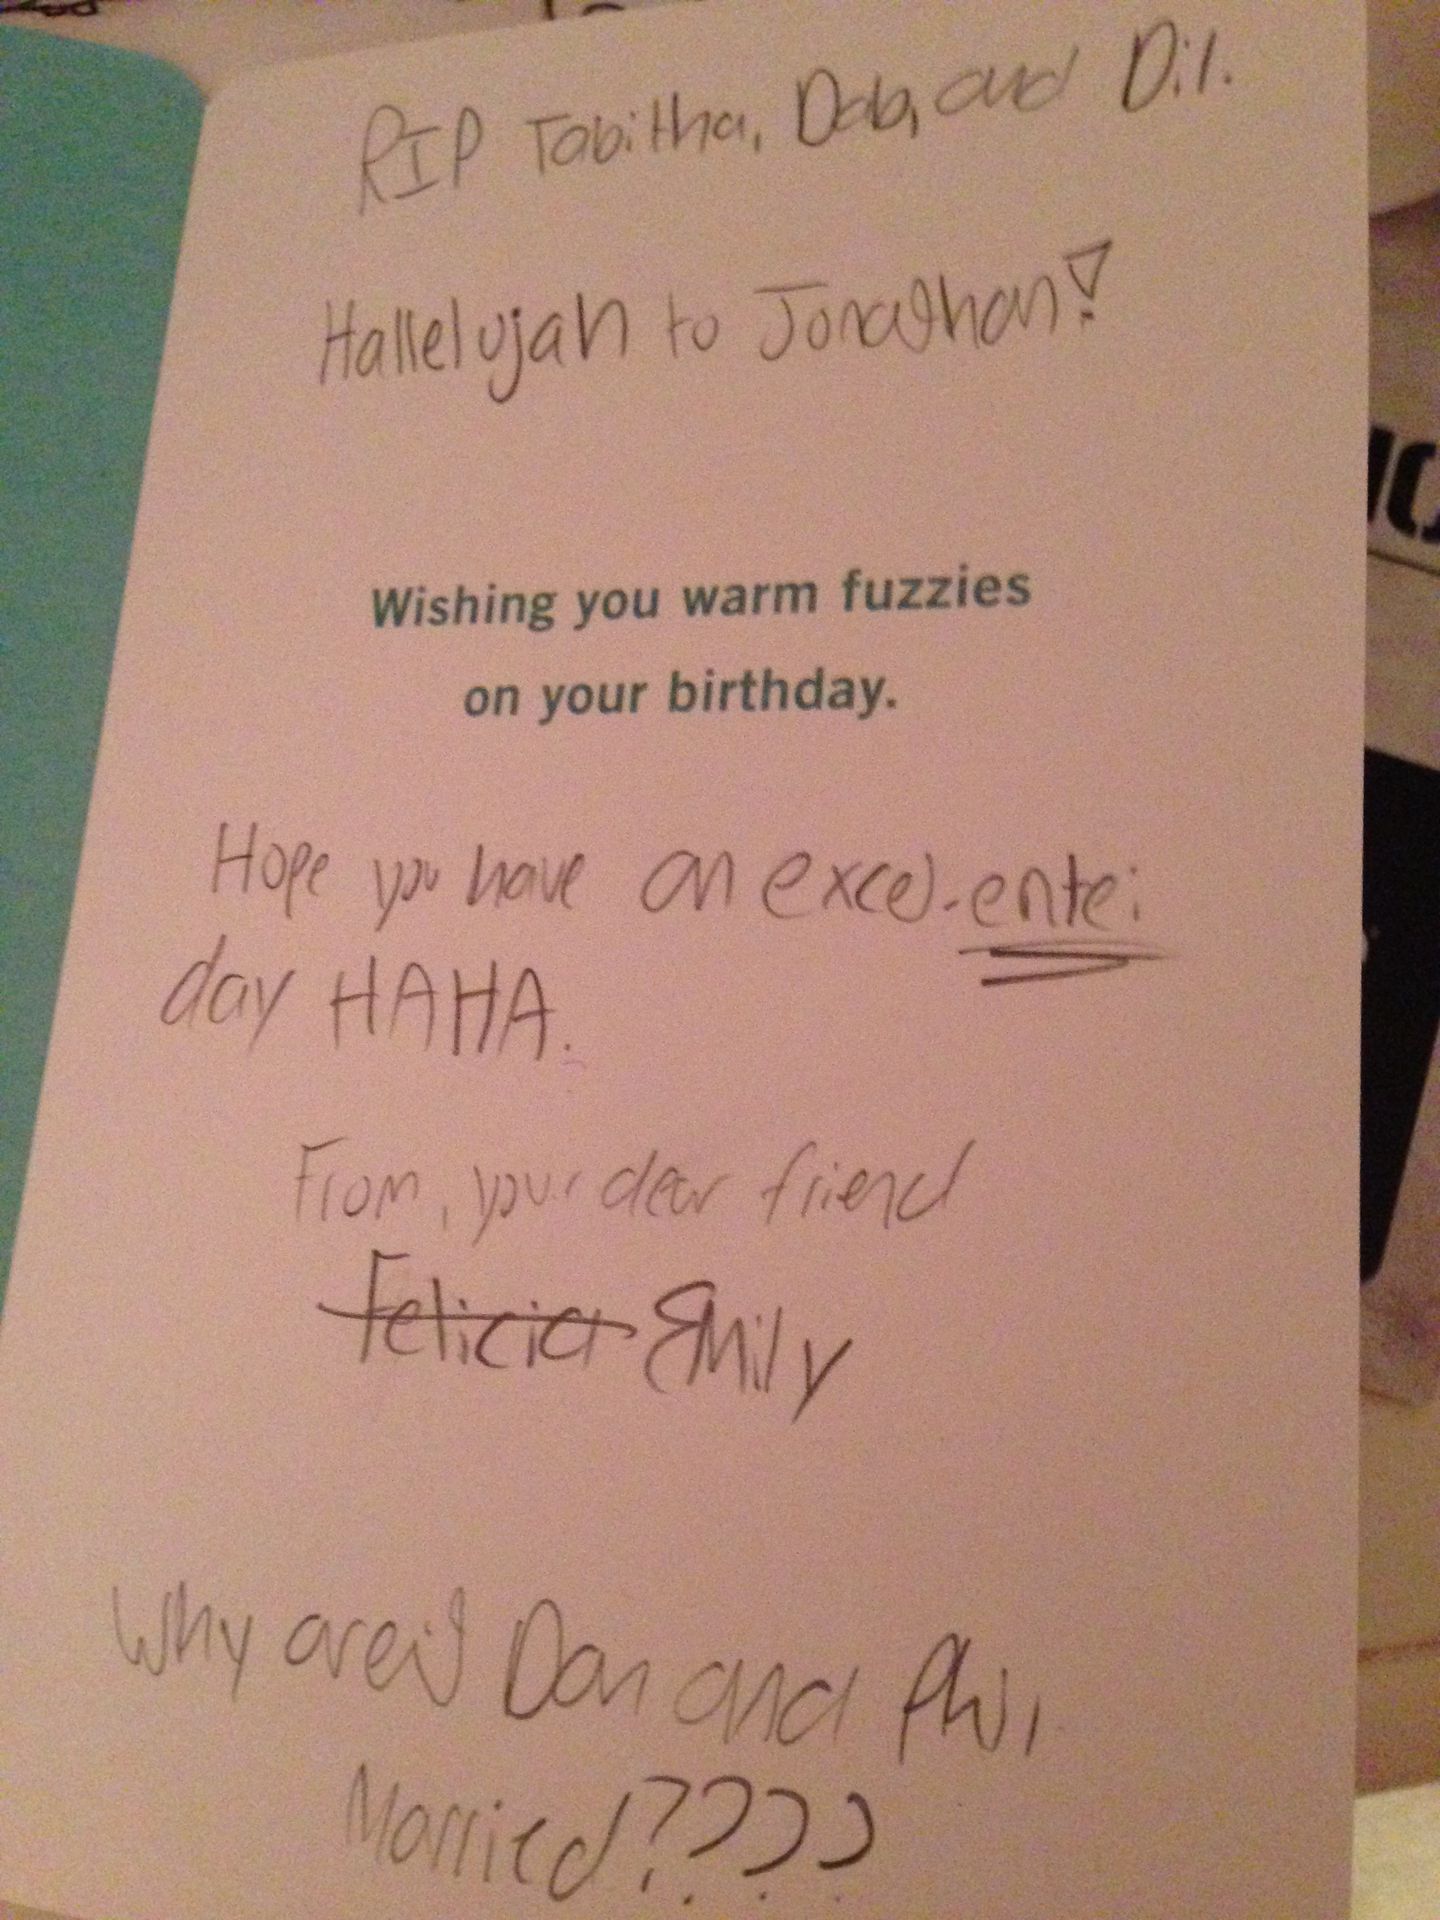 RIP Tabitha, Dab, and Dil.
Hallelujah to Jonathan!
Wishing you warm fuzzies
on your birthday.
Hope you have an excel-entei
day HAHA.
From, your dear friend
Felicia Emily
Why aren't Dan and Phil
Married????